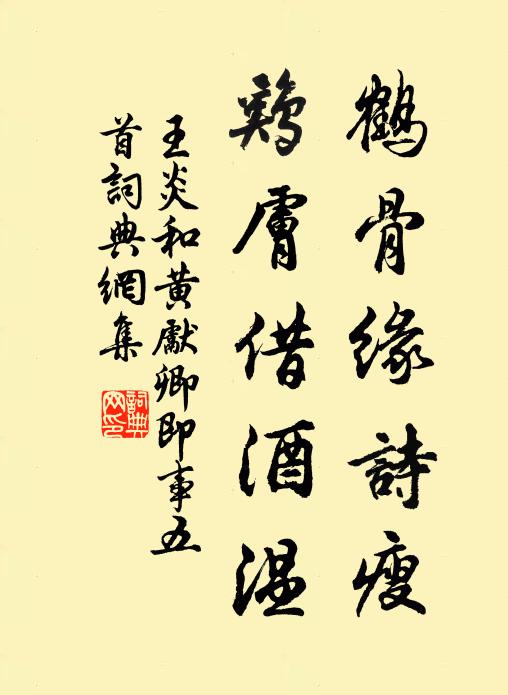 鶴骨緣詩瘦
鷄膚借酒溫
王炎和黃獻卿即事五
首詞典網集
詞典
网印